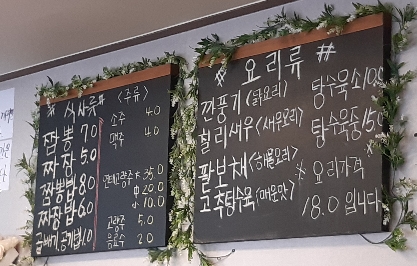 # 식사류 #
짬뽕 7.0
짜장 5.0
짬뽕밥 8.0
짜장밥 6.0
곱빼기 공기밥 1.0
<주류>
소주 4.0
맥주 4.0
연태고량주 大 35.0
中 20.0
小 10.0
고량주 5.0
음료수 2.0
# 요리류 #
깐풍기 (닭요리)
칠리새우 (새우요리)
팔보채 (해물요리)
고추탕수육 (매운맛)
탕수육소 10.0
탕수육중 15.0
※ 요리가격
18.0 입니다